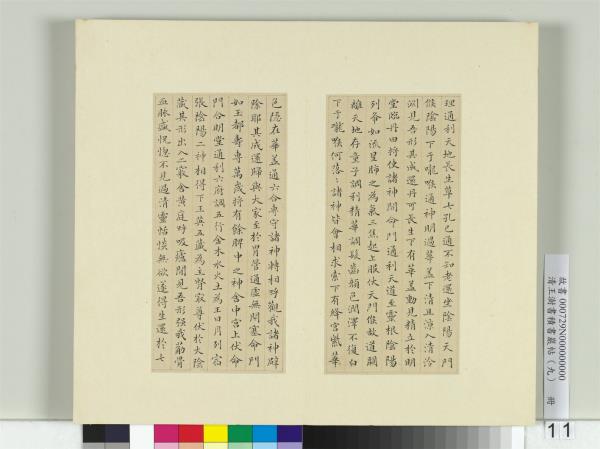 理通利天地長生草七孔已通不知老還坐陰陽天門
候陰陽下于嚨喉通神明過華蓋下清且涼入清泠
淵見吾形其成還丹可長生下有華蓋動見精立於明
堂臨丹田將使諸神開命門通利天道至靈根陰陽
列布如流星肺之為氣三焦起上服伏天門候故道闚
離天地存童子調利精華調髮齒顏色潤澤不復白
下于嚨喉何落落諸神皆會相求索下有絳宮紫華
色隱在華蓋通六合專守諸神轉相呼觀我諸神辟
除耶其成還歸與大家至於胃管通虛無閉塞命門
如玉都壽專萬歲將有餘脾中之神舍中宮上伏命
門合明堂通利六府調五行金木水火土為王日月列宿
張陰陽二神相得下玉英五藏為主腎最尊伏於太陰
藏其形出入二竅舍黃庭呼吸廬間見吾形強我筋骨
血脉盛恍惚不見過清靈恬惔無欲遂得生還於七
故書 000729N000000000
清王澍書積書巖帖(九) 冊
11